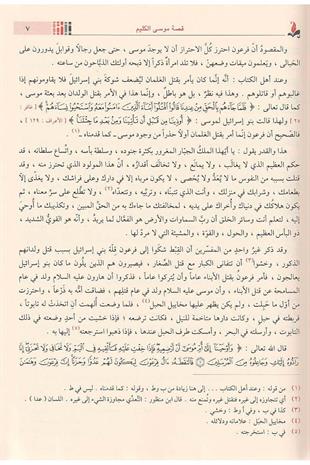 قصة موسى الكليم
٧
والمقصودُ أنَّ فرعون احترز كُلَّ الاحتراز أن لا يوجد موسى ، حتى جعل رجالاً وقوابل يدورون على
الحبالى ، ويعلمون ميقات وضعهنَّ ، فلا تلد امرأة ذكراً إلا ذبحه أولئك الذبَّاحون من ساعته .
وعند أهل الكتاب : أنَّه إنما كان يأمر بقتل الغلمان ليُضعف شوكةَ بني إسرائيلَ فلا يقاومونهم إذا
غالبوهم أو قاتلوهم . وهذا فيه نظرٌ ، بل هو باطلٌ ، وإنما هذا في الأمر بقتل الولدان بعد بعثة موسى ،
كما قال تعالى : ﴿ فَلَمَّا جَاءَهُم بِالْحَقِّ مِنْ عِندِنَا قَالُوا اقْتُلُوا أَبْنَاءَ الَّذِينَ آمَنُوا مَعَهُ وَاسْتَحْيُوا نِسَاءَهُمْ ﴾ [ غافر :
٢٥] ولهذا قالت بنو إسرائيل لموسى : ﴿ أُوذِينَا مِن قَبْلِ أَن تَأْتِيَنَا وَمِن بَعْدِ مَا جِئْتَنَا ﴾ [ الأعراف : ١٢٩ ] ،
فالصَّحيح أن فرعون إنما أمر بقتل الغلمان أولاً حذراً من وجود موسى ـ كما قدمناه (١) .
هذا والقدر يقول : يا أيُّهذا الملكُ الجبَّار المغرور بكثرة جنوده ، وسلطة بأسه ، واتِّساع سلطانه ، قد
حكم العظيم الذي لا يغالَب ، ولا يمانَع ، ولا تخالَف أقدارُه ، أنَّ هذا المولودَ الذي تحترز منه ، وقد
قتلت بسببه من النفوس ما لا يُعدُّ ولا يُحْصى ، لا يكون مرباه إلا في دارك وعلى فراشك ، ولا يغذى إلا
بطعامك ، وشرابك في منزلك ، وأنت الذي تتبناه ، وتربّيه ، وتتعدَّاه (٢) ، ولا تطَّلع على سرِّ معناه ، ثم
يكون هلاكك في دنياك وأُخراك على يديه ، لمخالفتك ما جاءك به من الحقِّ المبين ، وتكذيبك ما أُوحي
إليه ، لتعلم أنت وسائر الخلق أن ربَّ السماوات والأرض هو الفعَّال لما يريدُ ، وأنَّه هو القويُّ الشديد ،
ذو البأس العظيم ، والحول ، والقوَّة ، والمشيئة التي لا مردَّ لها .
وقد ذكر غيرُ واحدٍ من المفسّرين أن القِبْطَ شكَوْا إلى فرعون قِلَّة بني إسرائيل بسبب قتل ولدانهم
الذكور ، وخشوا (٣) أن تتفانى الكبار مع قتل الصِّغار ، فيصيرون هم الذين يلُون ما كان بنو إسرائيل
يعالجون ، فأمر فرعونُ بقتل الأبناء عاماً وأن يُتركوا عاماً ، فذكروا أن هارون عليه السلام ولد في عام
المسامحة عن قتل الأبناء ، وأن موسى عليه السلام ولد في عام قتلهم ، فضاقت أمُّه به ذَرْعاً ، واحترزت
من أوَّل ما حَبِلت ، ولم يكن يظهر عليها مخاييل الحبل (٤) ، فلما وضعت أُلهمت أن اتخذت له تابوتاً ،
فربطته في حبل ، وكانت دارها متاخمة للنيل ، فكانت ترضعه ، فإذا خشيت من أحدٍ وضعته في ذلك
التابوت ، وأرسلته في البحر ، وأمسكت طرف الحبل عندها ، فإذا ذهبوا استرجعته (٥) إليها به .
قال الله تعالى : ﴿ وَأَوْحَيْنَا إِلَى أُمِّ مُوسَى أَنْ أَرْضِعِيهِ فَإِذَا خِفْتِ عَلَيْهِ فَأَلْقِيهِ فِي الْيَمِّ وَلَا تَخَافِي وَلَا تَحْزَنِي إِنَّا
رَادُّوهُ إِلَيْكِ وَجَاعِلُوهُ مِنَ الْمُرْسَلِينَ فَالْتَقَطَهُ آلُ فِرْعَوْنَ لِيَكُونَ لَهُمْ عَدُوًّا وَحَزَنًا إِنَّ فِرْعَوْنَ وَهَامَانَ
(١) من قوله : وعند أهل الكتاب . . . إلى هنا زيادة من ب وط ، وقوله : كما قدمناه . ليس في ط .
(٢) أي تتجاوزه إلى غيره فتقتل غيره وتُمنع منه . قال ابن منظور : التعدِّي مجاوزة الشيء إلى غيره . اللسان ( عدا ) .
(٣) كذا في ب ، وفي أ وط : وخشي .
(٤) مخاييل الحبل : علاماته ودلائله .
(٥) في ب : استخرجته .